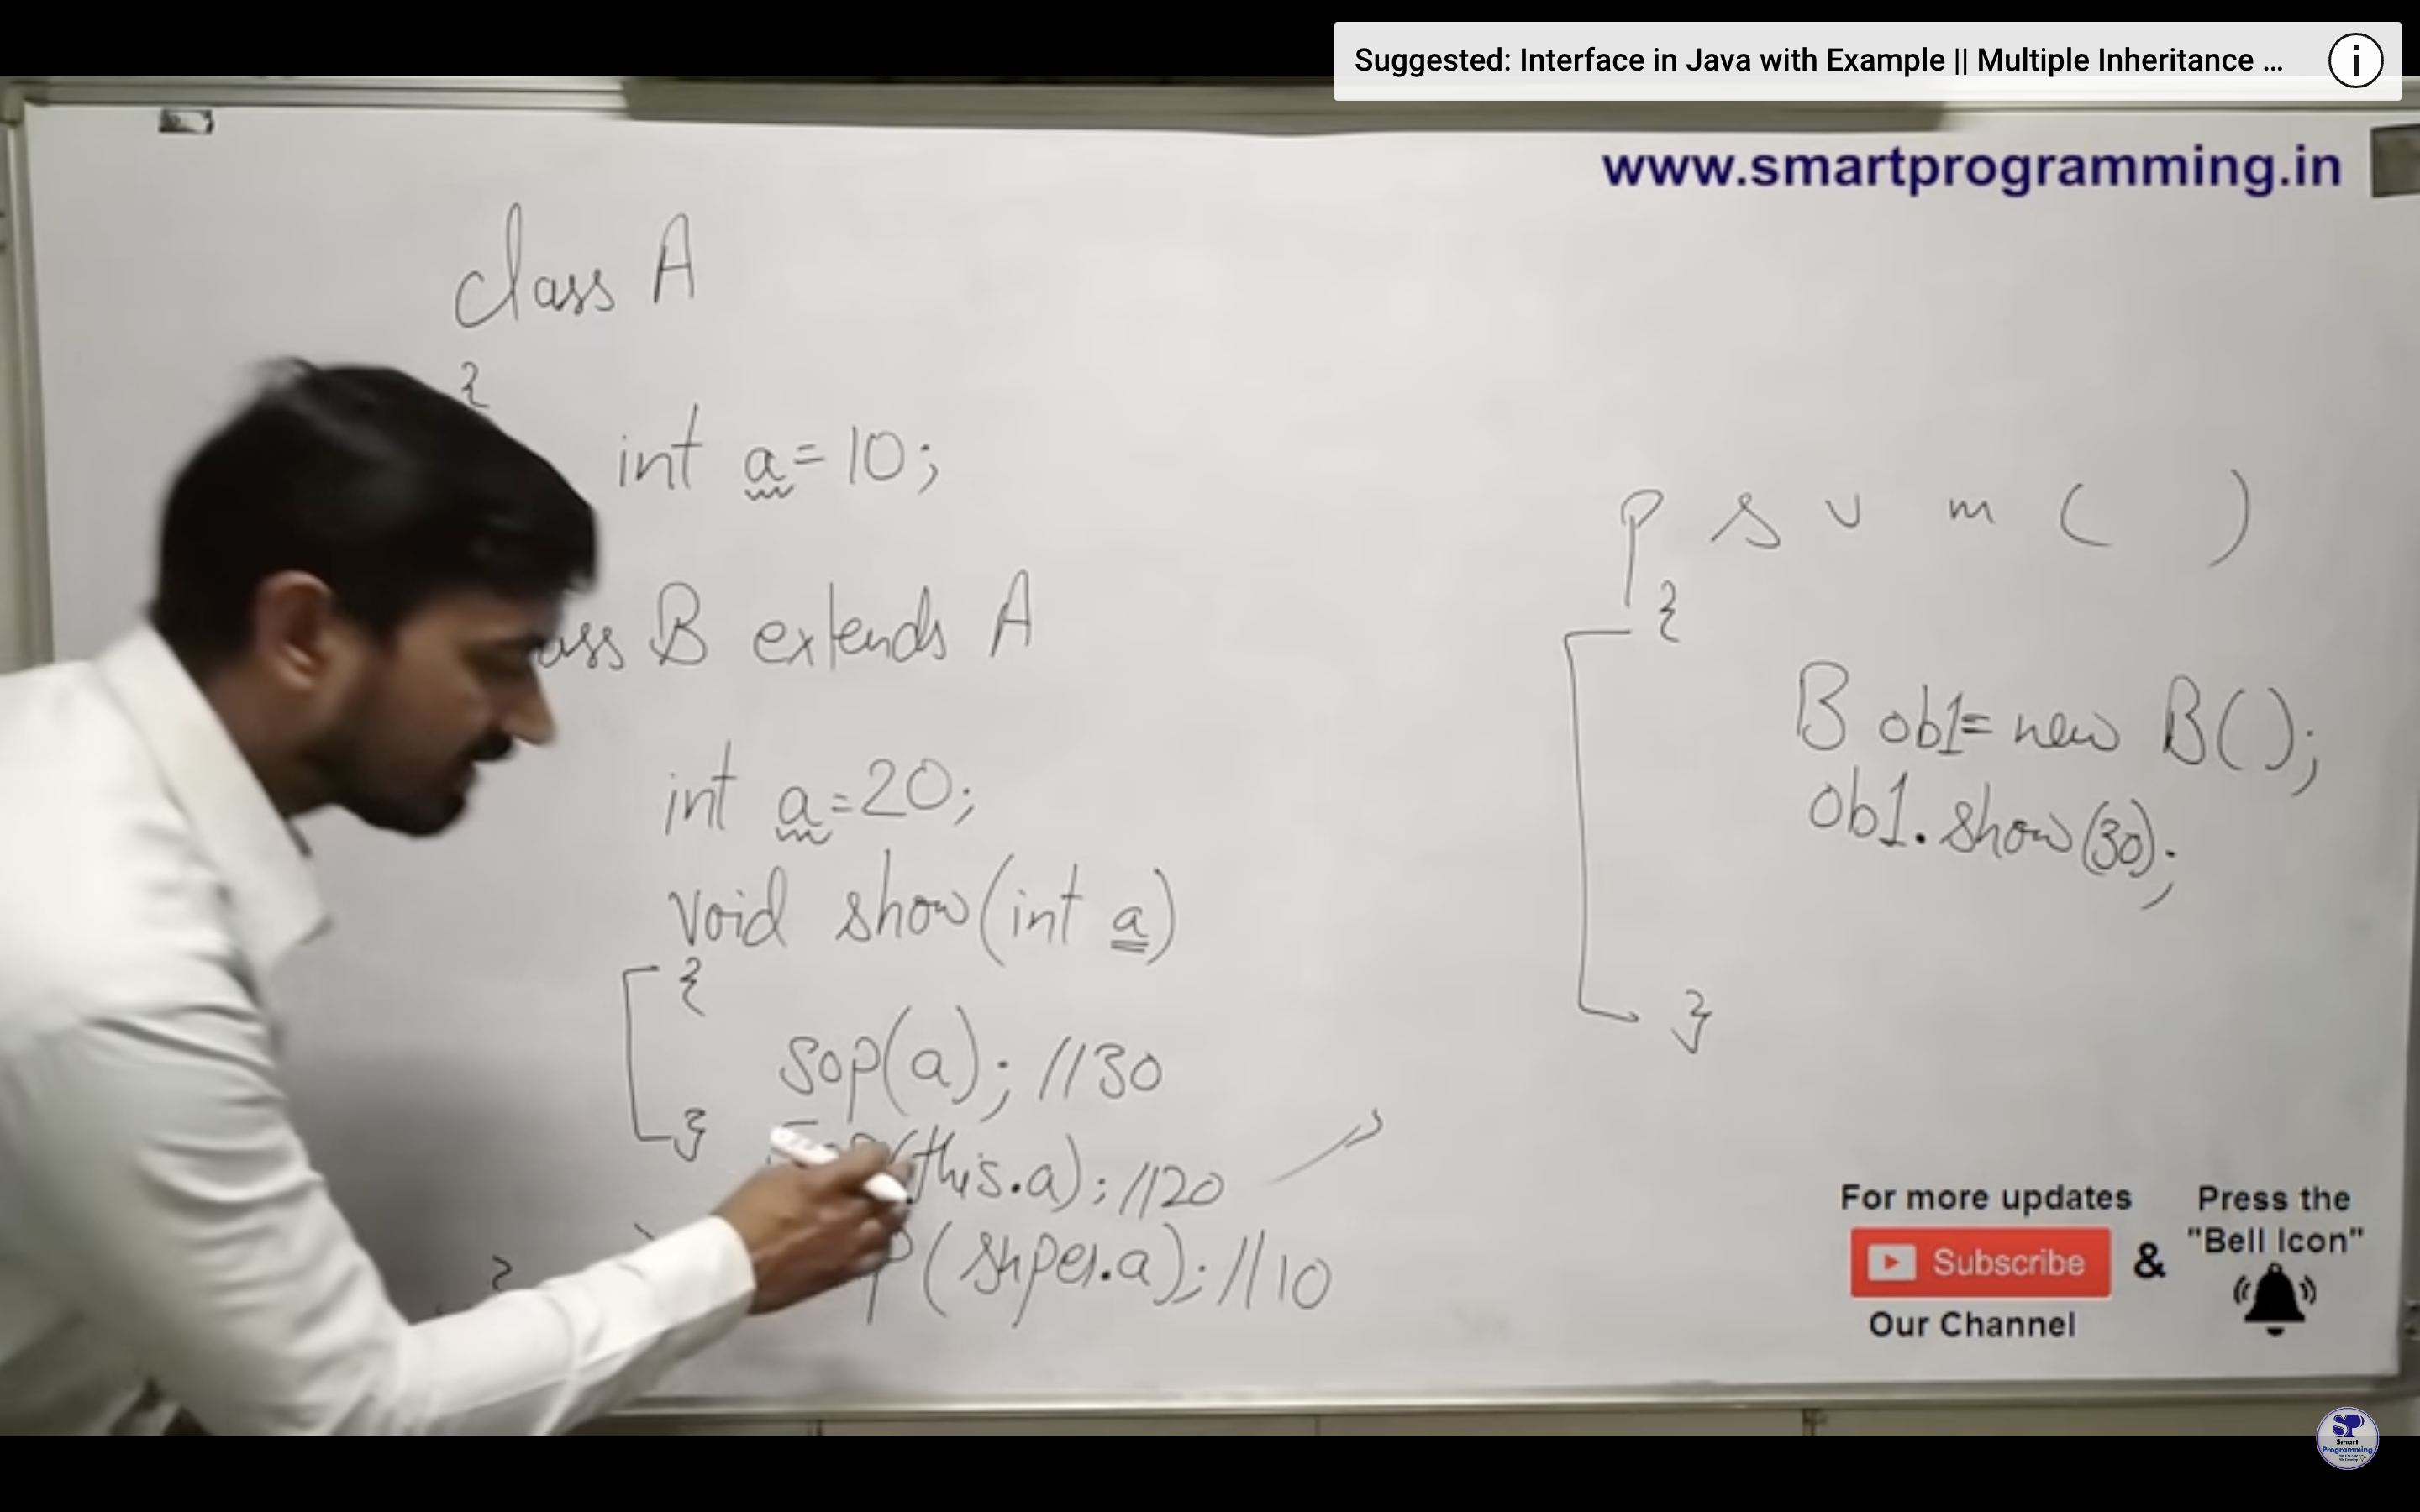 Suggested: Interface in Java with Example || Multiple Inheritance ...
i
www.smartprogramming.in
class A
{
int a=10;
B extends A
int a=20;
void show(int a)
{
Sop(a); //30
}
(this.a); //20
P(super.a); //10
P s v m ( )
{
B ob1= new B();
ob1.show(30);
}
For more updates
Subscribe
Our Channel
&
Press the
"Bell Icon"
SP
Smart
Programming